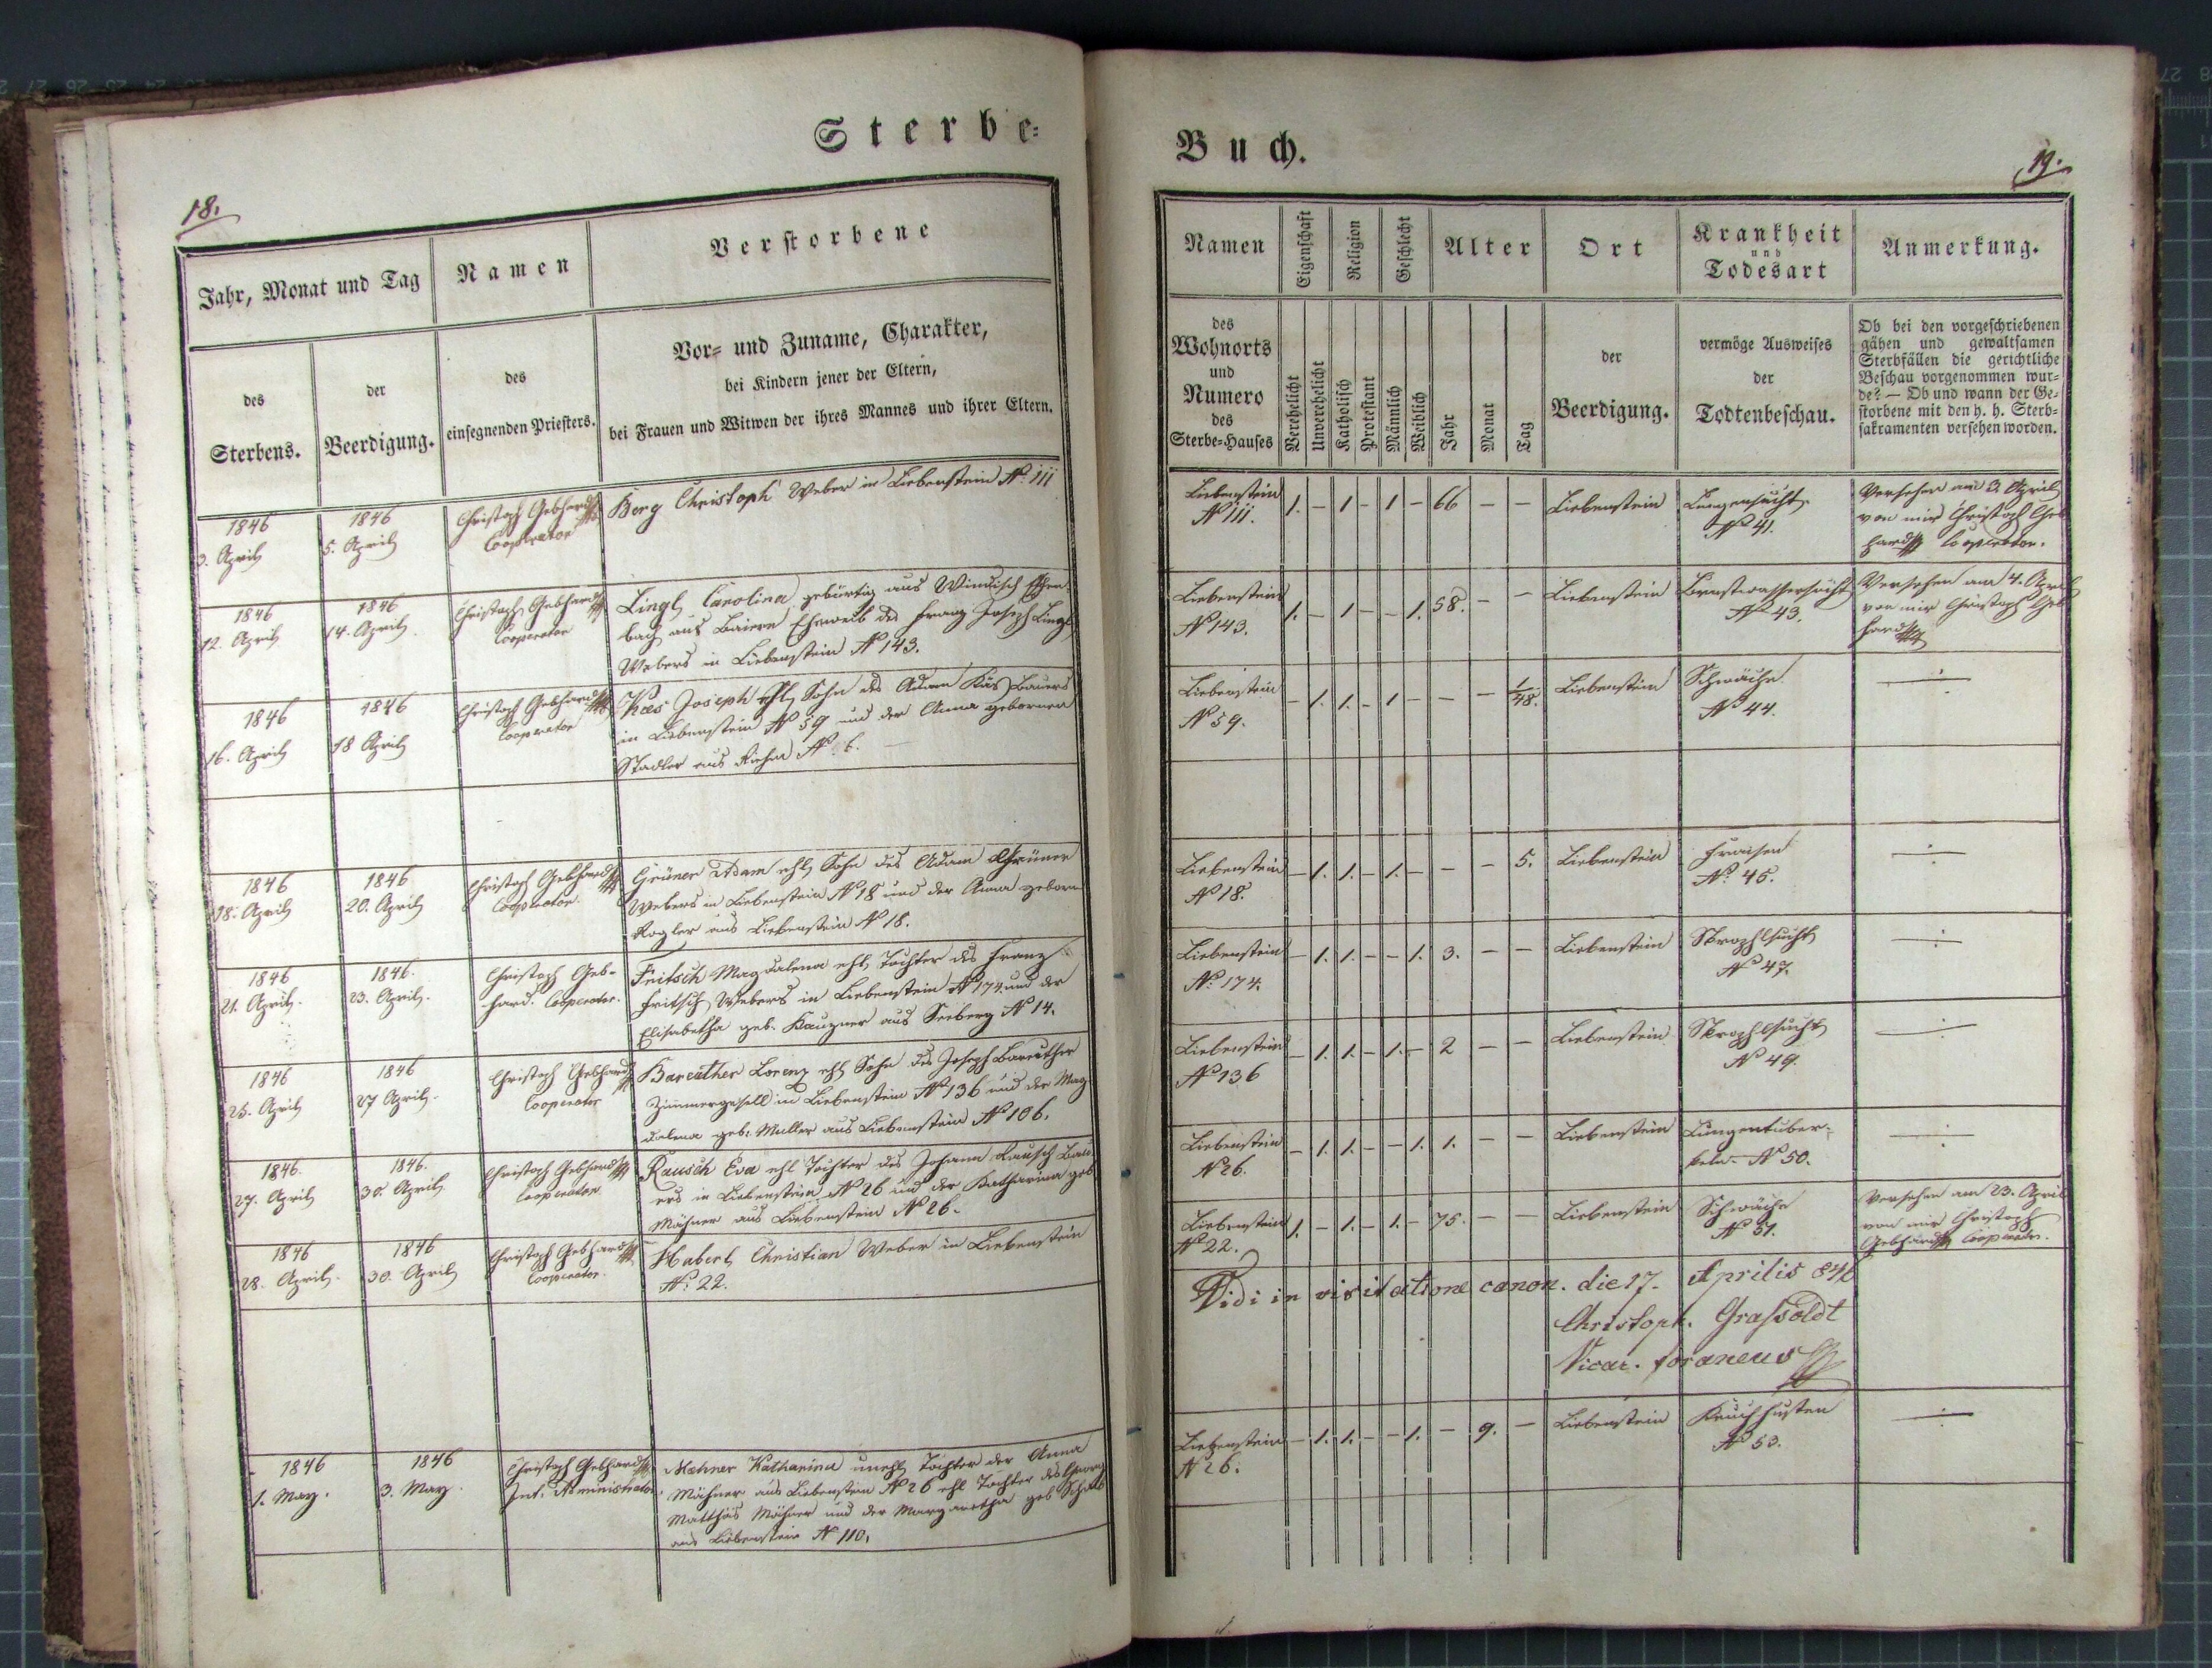 Sterbe=
18.
Jahr, Monat und Tag
Namen
Verstorbene
des
Sterbens.
der
Beerdigung.
des
einsegnenden Priesters.
Vor- und Zuname, Charakter,
bei Kindern jener der Eltern,
bei Frauen und Witwen der ihres Mannes und ihrer Eltern.
1846
3. April
1846
5. April
Christoph Gebhard
Cooperator
Berg Christoph Weber in Liebenstein No 111
1846
12. April
1846
14. April.
Christoph Gebhard
Cooperator
Lingl Carolina gebürtig aus Windisch Eschen
bach aus Baiern Eheweib des Franz Joseph Lingl
Webers in Liebenstein No 143.
1846
16. April
1846
18 April
Christoph Gebhard
Cooperator
Kæs Joseph ehl Sohn des Adam Käs Bauers
in Liebenstein No 59 und der Anna gebornen
Stadler aus No 6.
1846
18. April
1846
20. April
Christoph Gebhard
Cooperator.
Grüner Adam ehl Sohn des Adam Grüner
Webers in Liebenstein No 18 und der Anna geborn
Rogler aus Liebenstein No 18.
1846
21. April.
1846.
23. April.
Christoph Geb-
hard. Cooperator.
Fritsch Magdalena ehl Tochter des Franz
Fritsch Webers in Liebenstein No 174 und der
Elisabetha geb. Kauzner aus Seeberg No 14.
1846
25. April
1846
27 April.
Christoph Gebhard
Cooperator
Bareuther Lorenz ehl Sohn des Joseph Bareuther
Zimmergesell in Liebenstein No 136 und der Mag
dalena geb. Muller aus Liebenstein No 106.
1846.
27. April
1846.
30. April
Christoph Gebhard
Cooperator
Rausch Eva ehl Tochter des Johann Rausch Bau
ers in Liebenstein No 26 und der Katharina geb
Mähner aus Liebenstein No 26.
1846
28. April.
1846
30. April
Christoph Gebhard
Cooperator.
Haberl Christian Weber in Liebenstein
No 22.
1846
1. May.
1846
3. May.
Christoph Gebhard
Int. Administrator.
Mæhner Katharina unehl Tochter der Anna
Mähner aus Liebenstein No 26 ehl Tochter des Georg
Matthäs Mähner und der Margaretha geb
aus Liebenstein No 110.
Buch.
19.
Namen
Eigenschaft
Religion
Geschlecht
Alter
Ort
Krankheit
und
Todesart
Anmerkung.
des
Wohnorts
und
Numero
des
Sterbe=Hauses
Verehelicht
Unverehelicht
Katholisch
Protestant
Männlich
Weiblich
Jahr
Monat
Tag
der
Beerdigung.
vermöge Ausweises
der
Todtenbeschau.
Ob bei den vorgeschriebenen
gähen und gewaltsamen
Sterbfällen die gerichtliche
Beschau vorgenommen wur-
de? — Ob und wann der Ge-
storbene mit den h. h. Sterb=
sakramenten versehen worden.
Liebenstein
No 111.
1. – 1 – 1 – 66 – –
Liebenstein
Lungensucht.
No 41.
Versehen am 3. April
von mir Christoph Geb
hard Cooperator.
Liebenstein
No 143.
1. – 1 – – 1. 58. – –
Liebenstein
Brustwassersucht
No 43.
Versehen am 4. April
von mir Christoph Geb
hard
Liebenstein
No 59.
– 1. 1. – 1 – – – 1/48.
Liebenstein
Schwäche
No 44.
Liebenstein
No 18.
– 1. 1. – 1. – – – 5.
Liebenstein
Fraisen
No 45.
Liebenstein
No 174.
– 1. 1. – – 1. 3. – –
Liebenstein
Skrophlsucht
No 47.
Liebenstein
No 136
– 1. 1. – 1. – 2 – –
Liebenstein
Skrophlsucht
No 49.
Liebenstein
No 26.
– 1. 1. – – 1. 1. – –
Liebenstein
Lungentuber-
keln – No 50.
Liebenstein
No 22.
1. – 1. – 1. – 75. – –
Liebenstein
Schwäche
No 51.
Versehen am 23. April
von mir Christoph
Gebhard Cooperator.
Vidi in visitatione canon. die 17. Aprilis 846
Christoph. Grassoldt
Vicar. foraneus
Liebenstein
No 26.
– 1. 1. – – 1. – 9. –
Liebenstein
Keuchhusten
No 53.